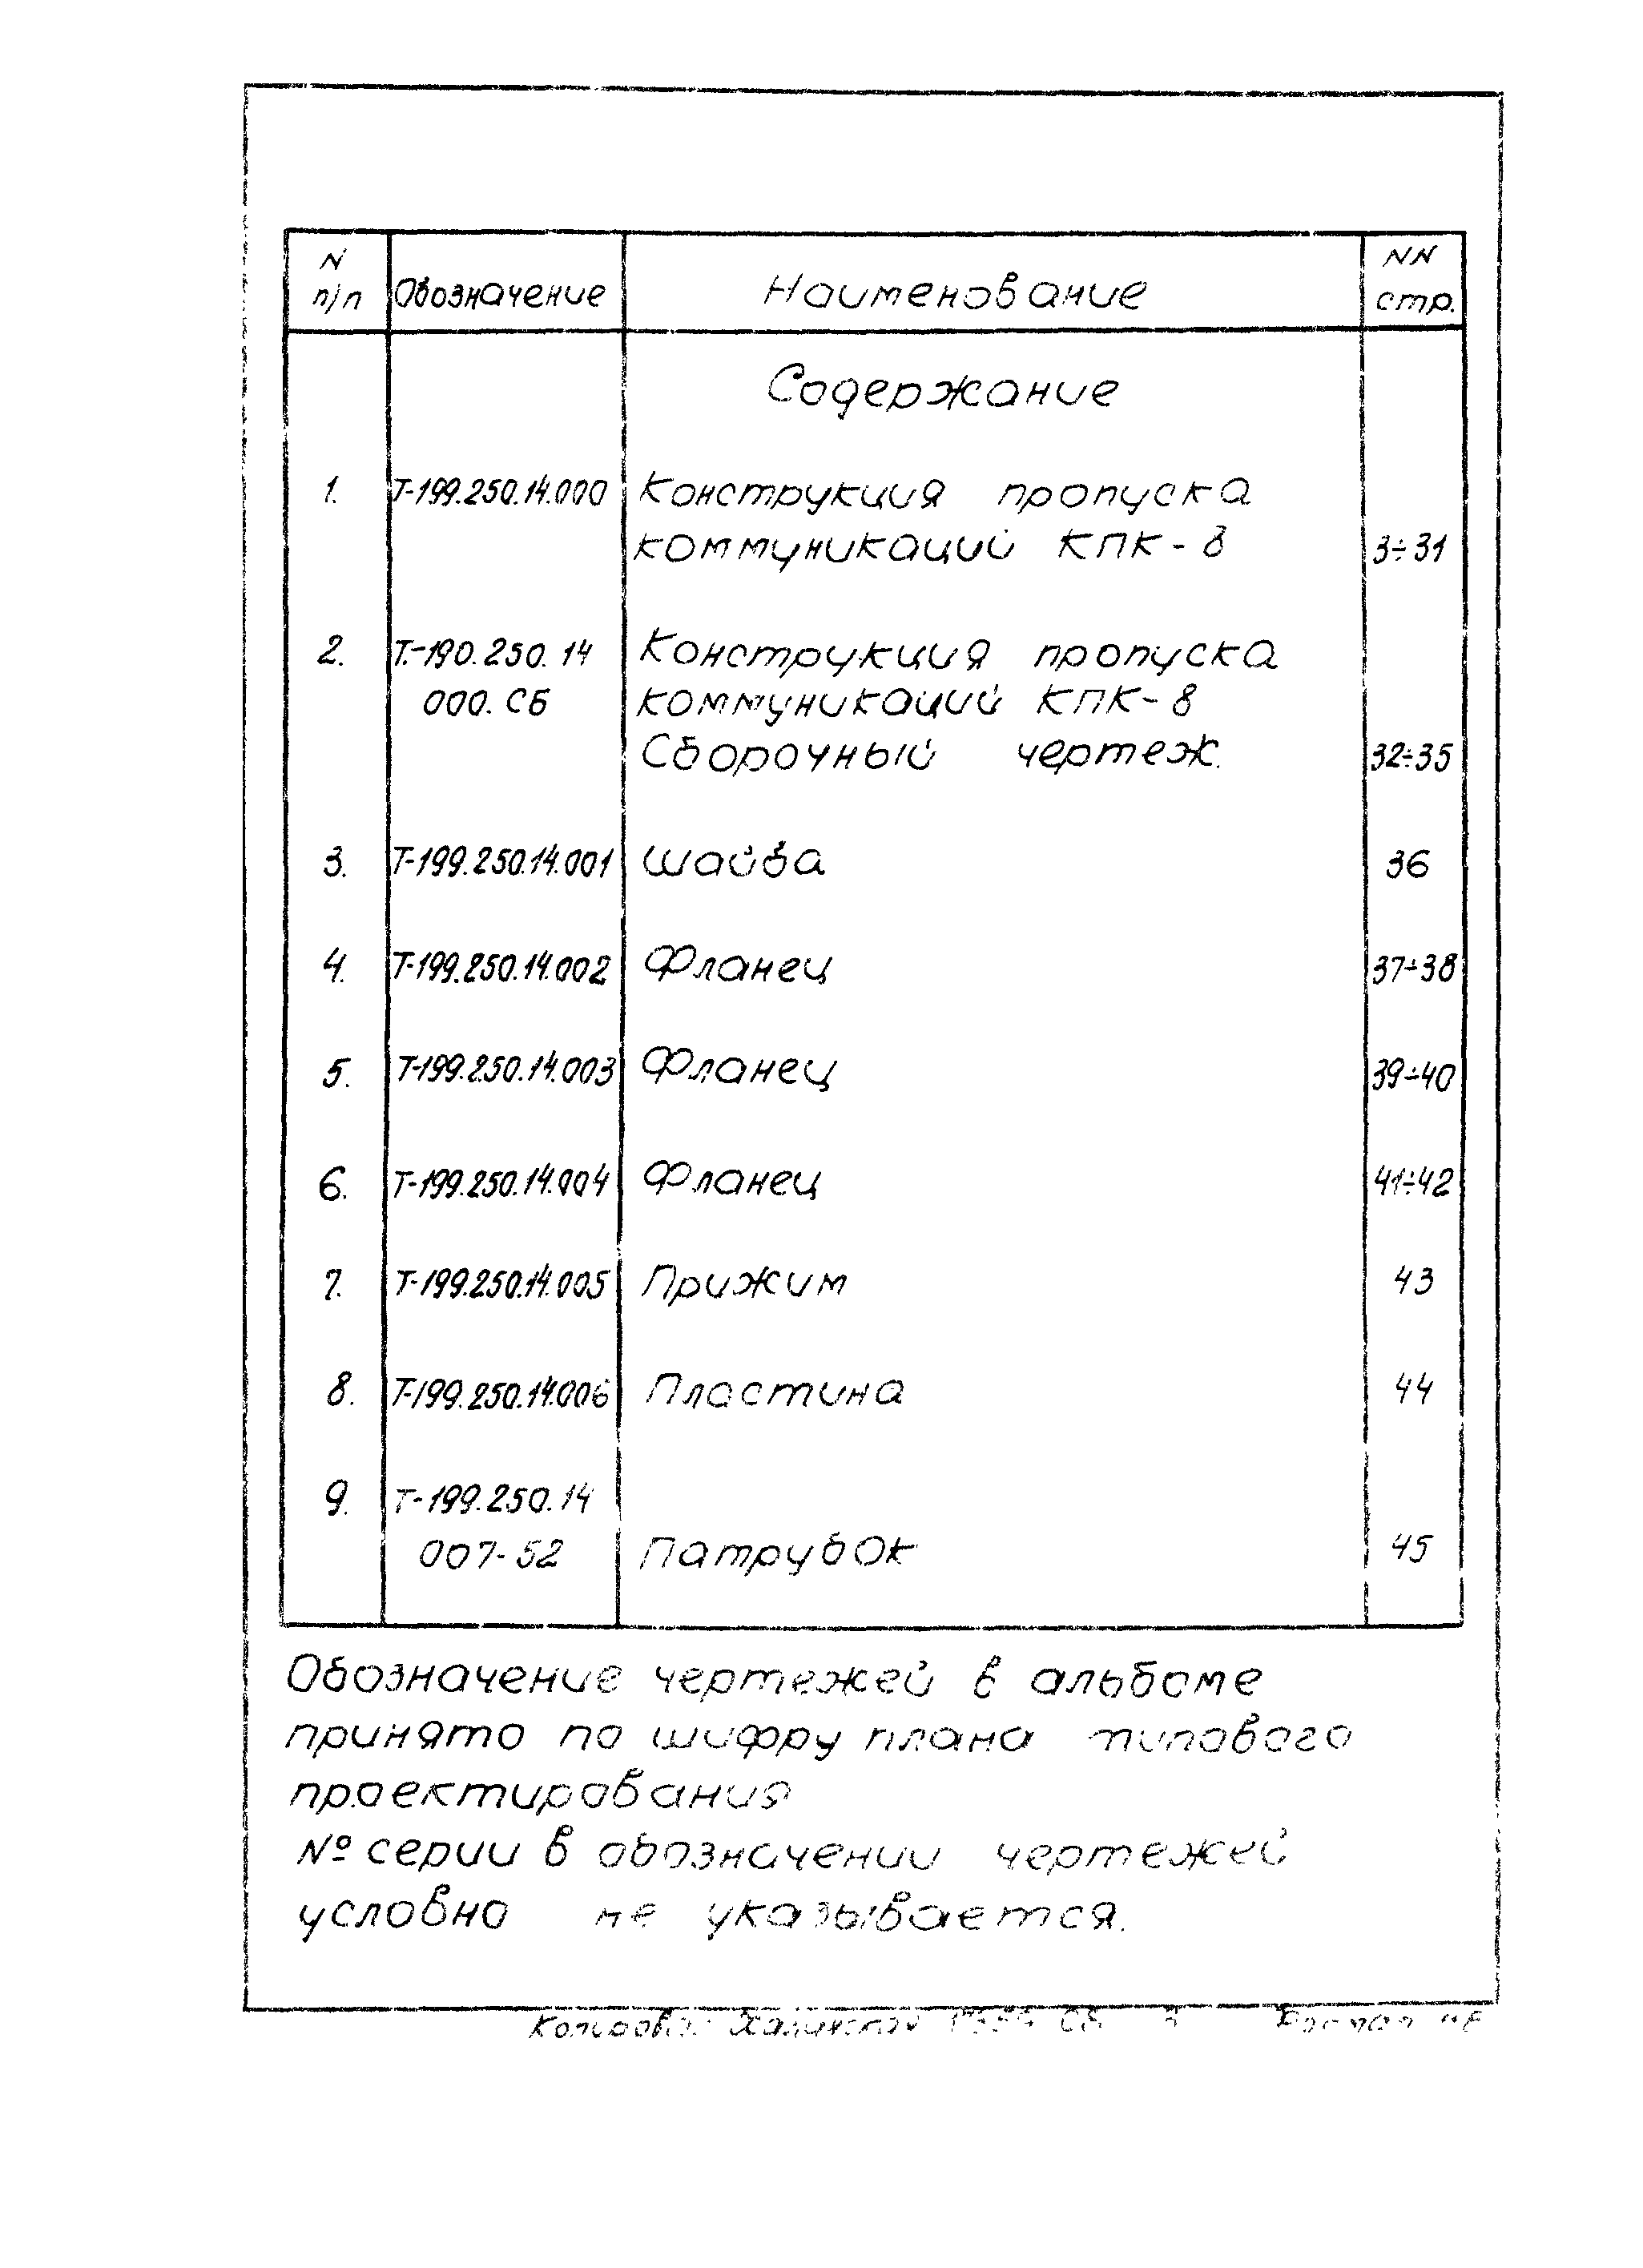 N п/п Обозначение Наименование NN стр.
Содержание
1. Т-199.250.14.000 Конструкция пропуска
коммуникаций КПК-8 3÷31
2. Т.-190.250.14 Конструкция пропуска
000.СБ коммуникаций КПК-8
Сборочный чертеж. 32÷35
3. Т-199.250.14.001 Шайба 36
4. Т-199.250.14.002 Фланец 37÷38
5. Т-199.250.14.003 Фланец 39÷40
6. Т-199.250.14.004 Фланец 41÷42
7. Т-199.250.14.005 Прижим 43
8. Т-199.250.14.006 Пластина 44
9. Т-199.250.14
007-52 Патрубок 45
Обозначение чертежей в альбоме
принято по шифру плана типового
проектирования
№ серии в обозначении чертежей
условно не указывается.